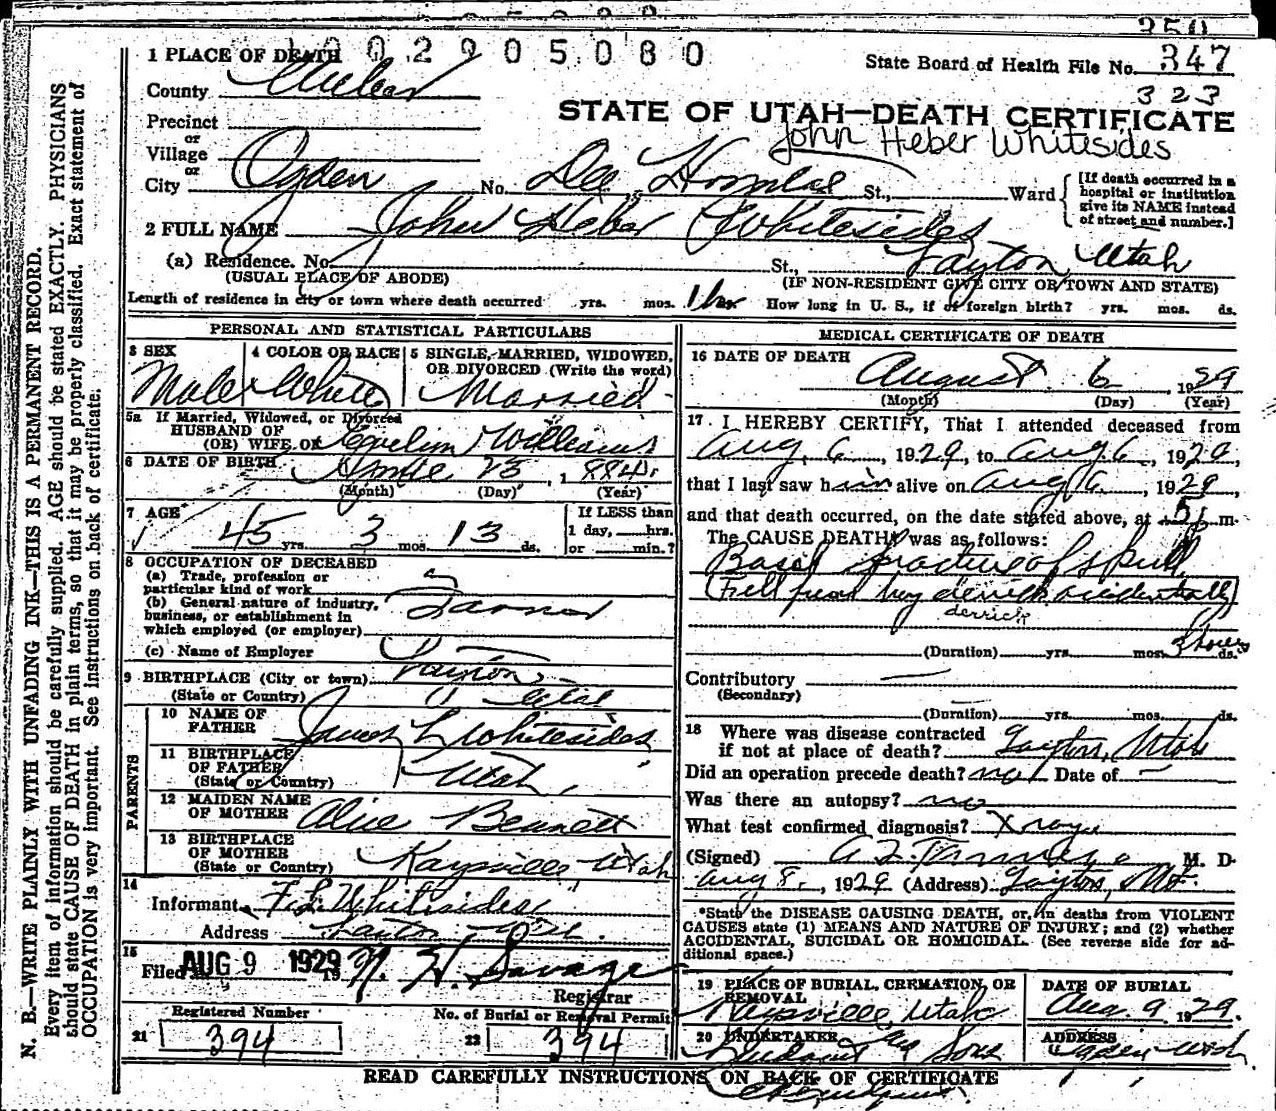 350
1 PLACE OF DEATH 1002905080
State Board of Health File No. 347
323
County
STATE OF UTAH—DEATH CERTIFICATE
Precinct
or
John Heber Whitesides
Village
or
City Ogden No. Dee Hospital St., Ward
[If death occurred in a
hospital or institution
give its NAME instead
of street and number.]
2 FULL NAME John Heber Whitesides
(a) Residence. No. St., Layton, Utah
(USUAL PLACE OF ABODE) (IF NON-RESIDENT GIVE CITY OR TOWN AND STATE)
Length of residence in city or town where death occurred yrs. mos. 1 hr. How long in U. S., if of foreign birth? yrs. mos. ds.
PERSONAL AND STATISTICAL PARTICULARS
3 SEX
Male
4 COLOR OR RACE
White
5 SINGLE, MARRIED, WIDOWED,
OR DIVORCED (Write the word)
Married
5a If Married, Widowed, or Divorced
HUSBAND OF
(OR) WIFE OF Williams
6 DATE OF BIRTH 23, 1884
(Month) (Day) (Year)
7 AGE
45 yrs. 3 mos. 13 ds.
If LESS than
1 day, hrs.
or min.?
8 OCCUPATION OF DECEASED
(a) Trade, profession or
particular kind of work
(b) General nature of industry,
business, or establishment in
which employed (or employer)
Farmer
(c) Name of Employer
9 BIRTHPLACE (City or town) Layton
(State or Country) Utah
PARENTS
10 NAME OF
FATHER James L Whitesides
11 BIRTHPLACE
OF FATHER
(State or Country) Utah
12 MAIDEN NAME
OF MOTHER Alice Bennett
13 BIRTHPLACE
OF MOTHER
(State or Country) Kaysville, Utah
14
Informant F. L. Whitesides
Address Layton
15
Filed AUG 9 1929 19 N. H. Savage
Registrar
Registered Number
21 394
No. of Burial or Removal Permit
22 394
MEDICAL CERTIFICATE OF DEATH
16 DATE OF DEATH
August 6, 1929
(Month) (Day) (Year)
17 I HEREBY CERTIFY, That I attended deceased from
Aug. 6, 1929, to Aug 6, 1929,
that I last saw him alive on Aug 6, 1929
and that death occurred, on the date stated above, at 5 m.
The CAUSE DEATH was as follows:
Basal fracture of skull
(Fell from hay derrick accidentally)
derrick
(Duration) yrs. mos. 3 hours ds.
Contributory —
(Secondary)
(Duration) yrs. mos. ds.
18 Where was disease contracted
if not at place of death? Layton, Utah
Did an operation precede death? no Date of —
Was there an autopsy? no
What test confirmed diagnosis? X rays
(Signed) M. D.
Aug 8, 1929 (Address) Layton, Ut.
*State the DISEASE CAUSING DEATH, or, in deaths from VIOLENT
CAUSES state (1) MEANS AND NATURE OF INJURY; and (2) whether
ACCIDENTAL, SUICIDAL OR HOMICIDAL. (See reverse side for ad-
ditional space.)
19 PLACE OF BURIAL, CREMATION, OR
REMOVAL
Kaysville, Utah
DATE OF BURIAL
Aug. 9, 1929.
20 UNDERTAKER
& Sons
ADDRESS
Ogden Utah
READ CAREFULLY INSTRUCTIONS ON BACK OF CERTIFICATE
N. B.—WRITE PLAINLY WITH UNFADING INK—THIS IS A PERMANENT RECORD.
Every item of information should be carefully supplied. AGE should be stated EXACTLY. PHYSICIANS
should state CAUSE OF DEATH in plain terms, so that it may be properly classified. Exact statement of
OCCUPATION is very important. See instructions on back of certificate.